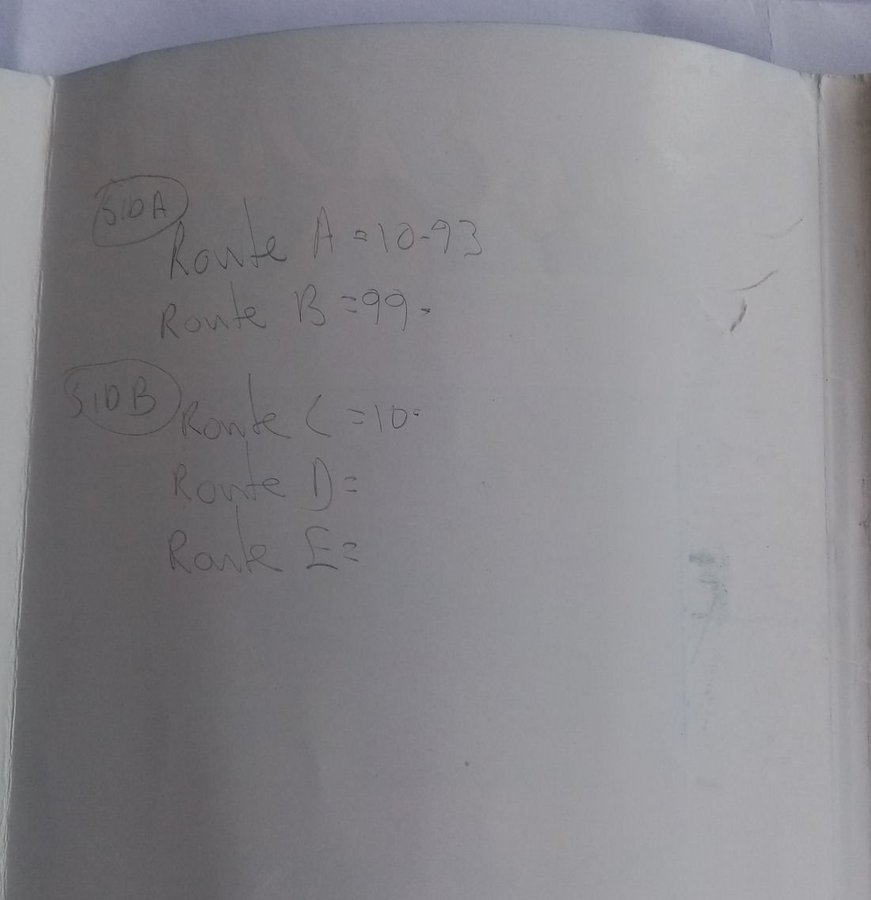 SID A
Route A = 10-93
Route B = 99.
SID B
Route C = 10.
Route D =
Route E =